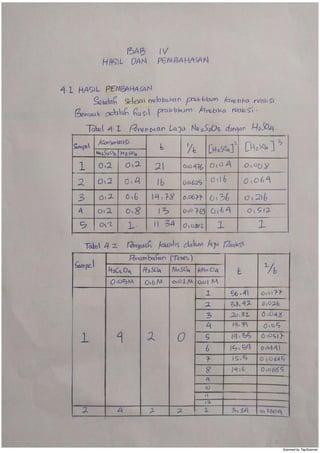 BAB IV
HASIL DAN PEMBAHASAN
4.1 HASIL PEMBAHASAN
Setelah selesai melakukan praktikum kinetika reaksi
Berikut adalah hasil praktikum kinetika reaksi :-
Tabel 4.1 Penentuan Laju Na2S2O3 dengan H2SO4
Sampel Konsentrasi t 1/t [H2SO4]² [H2SO4]³
Na2S2O3 H2SO4
1 0.2 0.2 21 0.0476 0.04 0.008
2 0.2 0.4 16 0.0625 0.16 0.064
3 0.2 0.6 14.78 0.0677 0.36 0.216
4 0.2 0.8 13 0.0769 0.64 0.512
5 0.2 1 11.34 0.0882 1 1
Tabel 4.2 Pengaruh katalis dalam laju Reaksi
Sampel Penambahan (Tetes) t 1/t
H2C2O4 H2SO4 MnSO4 KMnO4
0.05M 0.5M 0.01M 0.01M
1 56.41 0.0177
2 38.42 0.026
3 20.82 0.048
4 0.05
1 4 2 0 5 19.35 0.0517
6 15.59 0.0641
7 15.5 0.0645
8 14.6 0.0685
9
10
11
12
2 4 2 2 1
Scanned by TapScanner